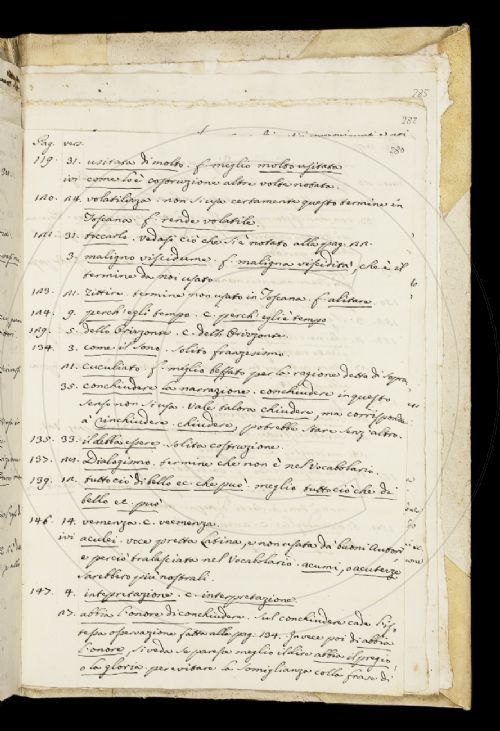 285
282
280
Pag. vers.
119. 31. usitata di molto. f. meglio molto usitata
ivi come lo è costruzione altre volte notata.
120. 24. volatilizza. non si usa certamente questo termine in
Toscana. f. rende volatile.
31. toccarlo. Vedasi ciò che si è notato alla pag.
3. maligno viscidume. f. maligna viscidità, che è il
termine da noi usato
123. 21. Zittire. termine non usato in Toscana f. alitare
124. 9. perch' egli tempo. c. perch' egli è tempo
129. 5. dello Orizonte. c. dell' Orizonte.
134. 3. come il sono. solito franzesismo.
21. cuculiato. f. meglio beffato per la ragione detta di sopra
35. conchiudere la narrazione. conchiudere in questo
senso non si usa. Vale talora chiudere, ma corrisponde
à rinchiudere. chiudere, potrebbe stare senz' altro.
135. 33. il debba essere. solita costruzione.
137. Dialogismo. termine che non è nel Vocabolario.
139. 12. tutto ciò di bello ec. che può. meglio tutto ciò che di
bello ec. può
146. 14. vemenza. c. veemenza.
ivi aculei. voce pretta Latina, e non usata da' buoni Autori
e perciò tralasciata nel Vocabolario. acumi, o acutezze
sarebbero più nostrali.
147. 4. intepretazione. c. interpretazione
23. abbia l'onore di conchiudere. sul conchiudere cade l' is-
tessa osservazione fatta alla pag. 134. In vece poi di abbia
l'onore, si veda se paresse meglio il dire abbia il pregio
o la gloria. per evitare la somiglianza colla frase di